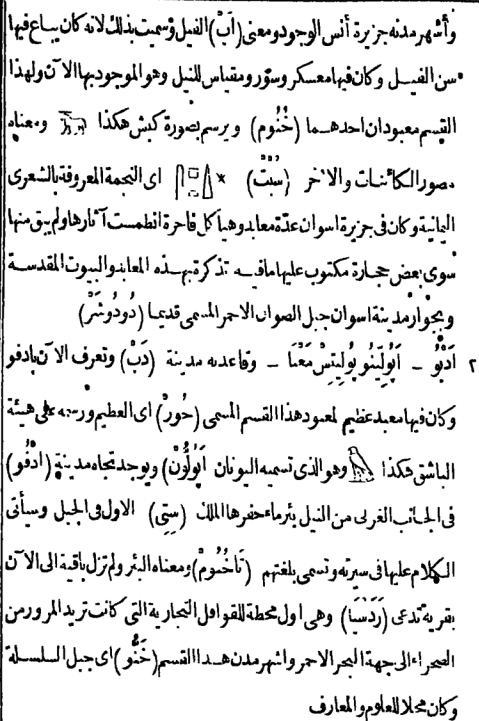 وأشهر مدنه جزيرة أنس الوجود ومعنى (اَبْ) الفيل وسميت بذلك لانه كان يباع فيها
سن الفيل وكان فيها معسكر وسور ومقياس للنيل وهو الموجود بها الآن ولهذا
القسم معبودان احدهما (خُنُوم) ويرسم بصورة كبش هكذا ومعناه
مصور الكائنات والآخر (سُبْتْ) اى النجمة المعروفة بالشعرى
اليمانية وكان فى جزيرة اسوان عدّة معابد وهياكل فاخرة انطمست آثارها ولم يبق منها
سوى بعض حجارة مكتوب عليها مافيه تذكرة بهذه المعابد والبيوت المقدسة
وبجوار مدينة اسوان جبل الصوان الاحمر المسمى قديما (دُودُوشَرْ)
٢ اَدْبُو – اَپُولِّينُو پُولِيتِسْ مَعْنَا – وقاعدته مدينة (دَبْ) وتعرف الآن بادفو
وكان فيها معبد عظيم لمعبود هذا القسم المسمى (حُورْ) اى العظيم ورسمه على هيئة
الباشق هكذا وهو الذى تسميه اليونان (اَپُولُّونْ) ويوجد تجاه مدينة (ادْفُو)
فى الجانب الغربى من النيل بئر ماء حفرها الملك (سِتِى) الاول فى الجبل وسيأتى
الكلام عليها فى سيرته وتسمى بلغتهم (تَاخْنُومْ) ومعناه البئر ولم تزل باقية الى الآن
بقرية تدعى (رَدَسِيَا) وهى اول محطة للقوافل التجارية التى كانت تريد المرور من
الصحراء الى جهة البحر الاحمر واشهر مدن هذا القسم (خَنُّو) اى جبل السلسلة
وكان محلا للعلوم والمعارف